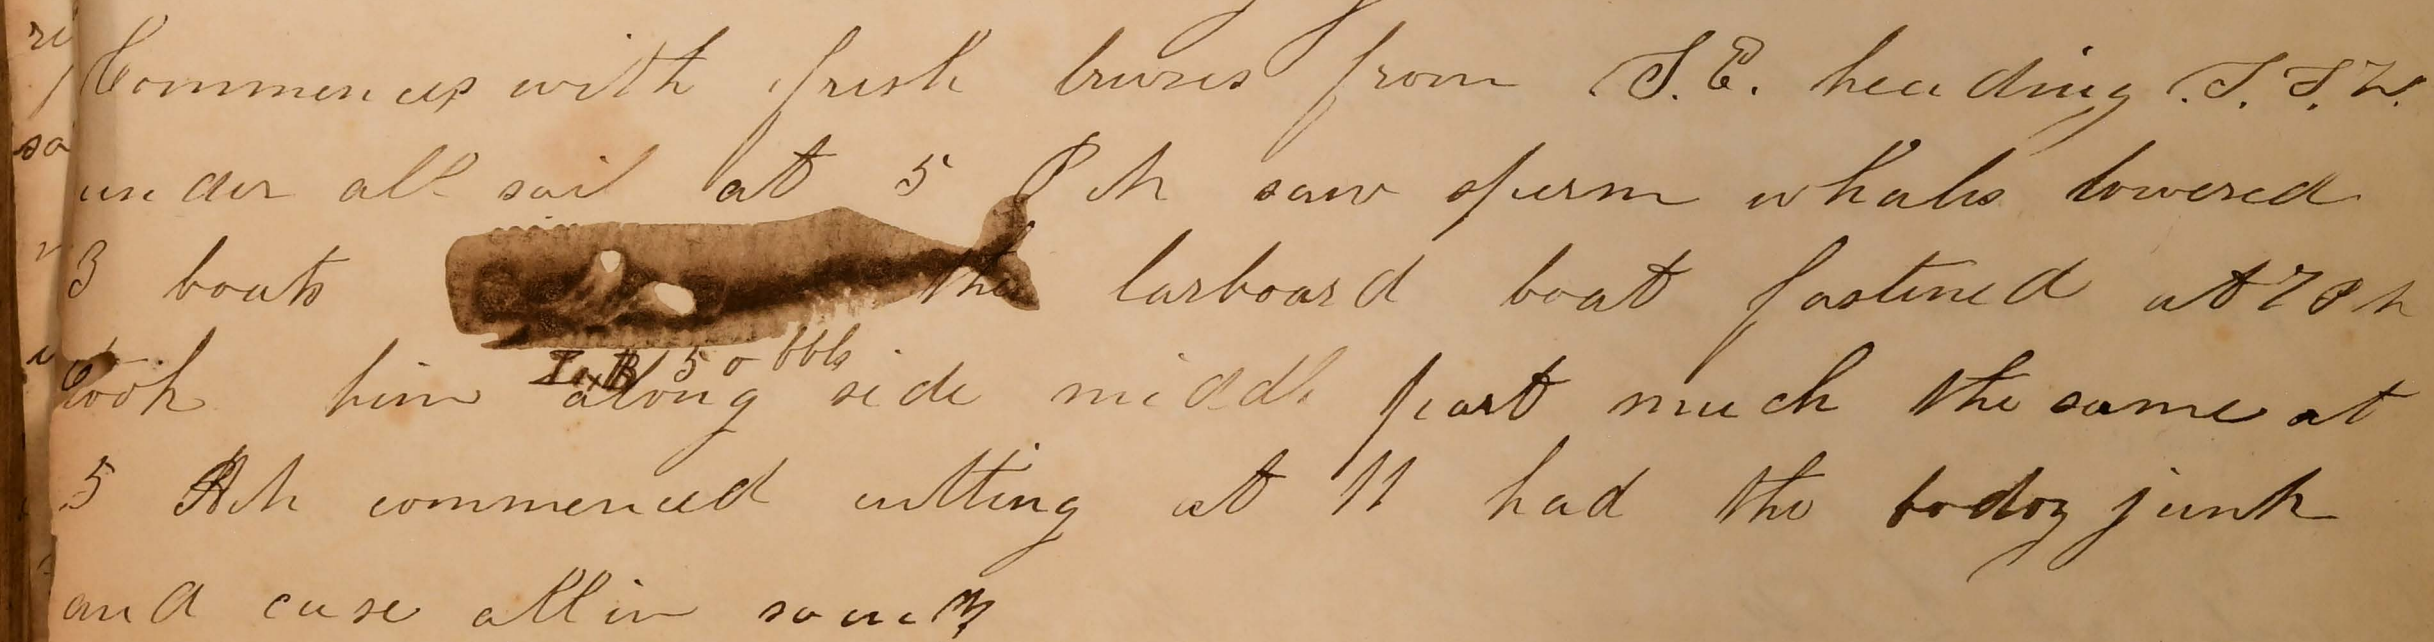 Commences with fresh breses from S.E. heading S.S.W.
under all sail at 5 PM saw sperm whales lowered
3 boats the larboard boat fastened at 7 PM
50 bbls
took him along side middle part much the same at
5 AM commenced cutting at 11 had the body junk
and case all in